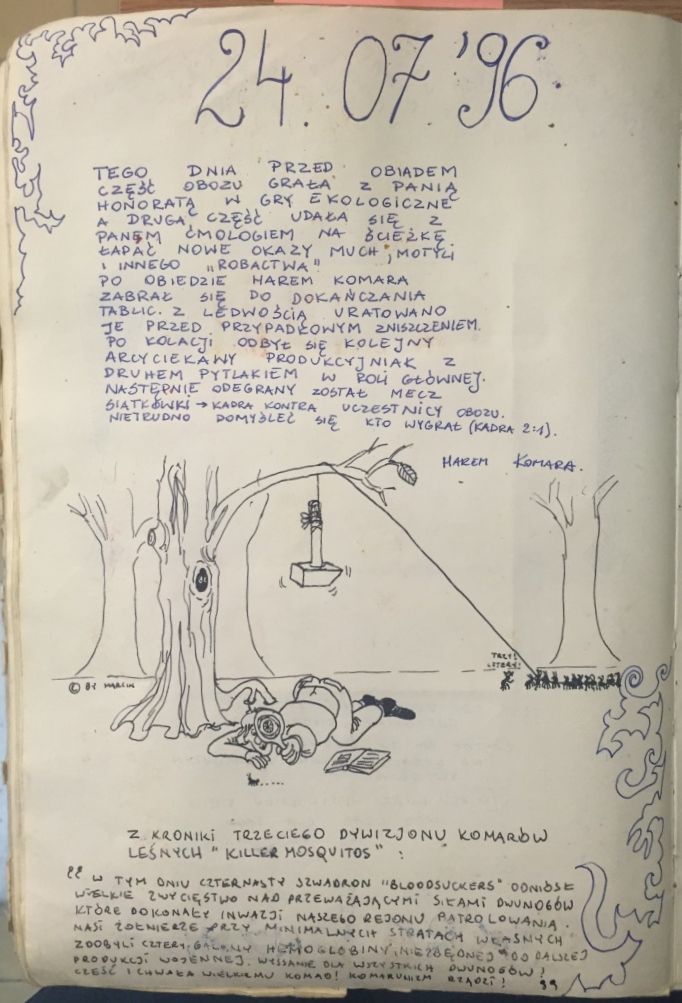 24. 07 '96
TEGO DNIA PRZED OBIADEM
CZĘŚĆ OBOZU GRAŁA Z PANIĄ
HONORATĄ W GRY EKOLOGICZNE
A DRUGA CZĘŚĆ UDAŁA SIĘ Z
PANEM ĆMOLOGIEM NA ŚCIEŻKĘ
ŁAPAĆ NOWE OKAZY MUCH, MOTYLI
I INNEGO „ROBACTWA"
PO OBIEDZIE HAREM KOMARA
ZABRAŁ SIĘ DO DOKAŃCZANIA
TABLIC. Z LEDWOŚCIĄ URATOWANO
JE PRZED PRZYPADKOWYM ZNISZCZENIEM.
PO KOLACJI ODBYŁ SIĘ KOLEJNY
ARCYCIEKAWY PRODUKCYJNIAK Z
DRUHEM PYTLAKIEM W ROLI GŁÓWNEJ.
NASTĘPNIE ODEGRANY ZOSTAŁ MECZ
SIATKÓWKI → KADRA KONTRA UCZESTNICY OBOZU.
NIETRUDNO DOMYŚLEĆ SIĘ KTO WYGRAŁ (KADRA 2:1).
HAREM KOMARA.
TRZY!
CZTERY!
© BY MARCIN
Z KRONIKI TRZECIEGO DYWIZJONU KOMARÓW
LEŚNYCH "KILLER MOSQUITOS" :
" W TYM DNIU CZTERNASTY SZWADRON "BLOODSUCKERS" ODNIÓSŁ
WIELKIE ZWYCIĘSTWO NAD PRZEWAŻAJĄCYMI SIŁAMI DWUNOGÓW
KTÓRE DOKONAŁY INWAZJI NASZEGO REJONU PATROLOWANIA.
NASI ŻOŁNIERZE PRZY MINIMALNYCH STRATACH WŁASNYCH
ZDOBYLI CZTERY GALONY HEMOGLOBINY, NIEZBĘDNEJ DO DALSZEJ
PRODUKCJI WOJENNEJ. WYSSANIE DLA WSZYSTKICH DWUNOGÓW!
CZEŚĆ I CHWAŁA WIELKIEMU KOMAO! KOMARUNIZM RZĄDZI! "